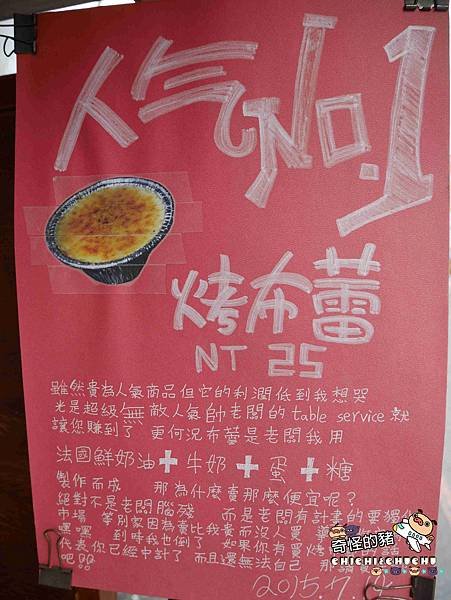 人气No.1
烤布蕾
NT 25
雖然貴為人氣商品但它的利潤低到我想哭
光是超級無敵人氣帥老闆的table service就
讓您賺到了 更何況布蕾是老闆我用
法國鮮奶油+牛奶+蛋+糖
製作而成 那為什麼賣那麼便宜呢?
絕對不是老闆腦殘 而是老闆有計畫的要獨佔
市場 等別家因為賣比我貴而沒人買
嘿嘿 到時我也倒了 如果你有買烤
代表你已經中計了 而且還無法自己 那
吧
2015.7
奇怪的豬
CHICHI&CHUCHU